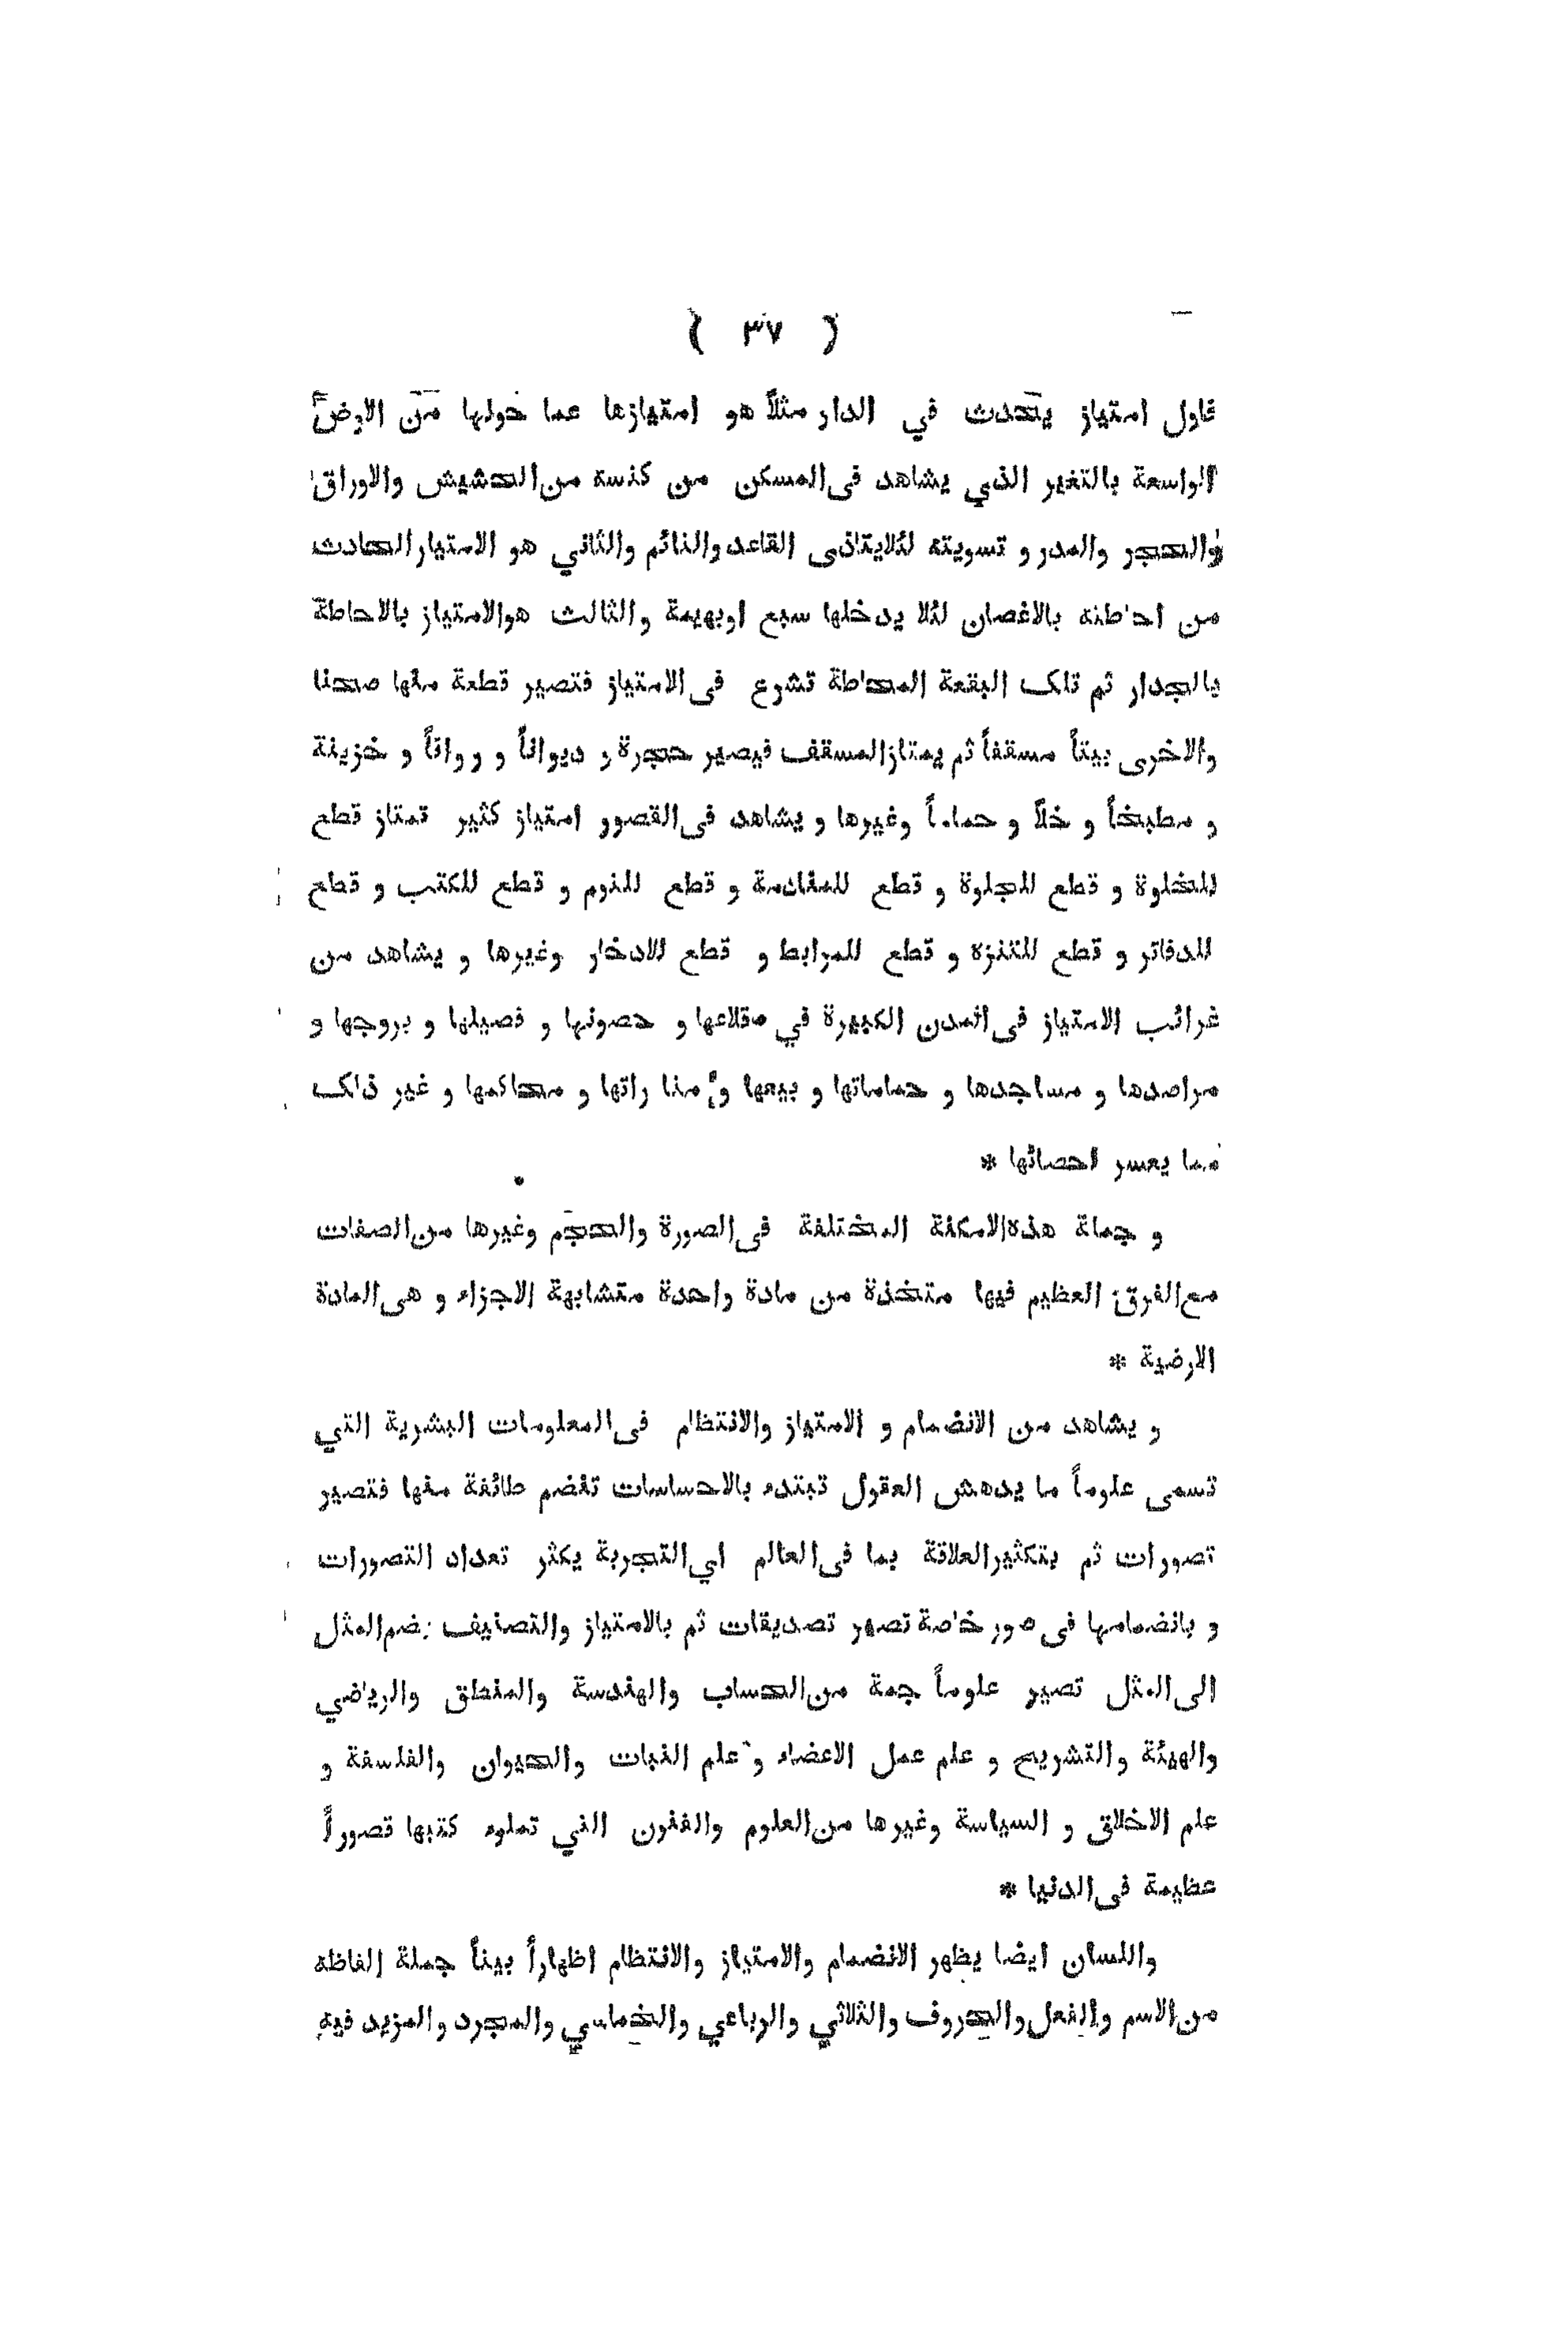 ( ٣٧ )
فاول امتياز يتحدث في الدار مثلاً هو امتيازها عما حولها من الارض
الواسعة بالتغير الذي يشاهد فى المسكن من كنسه من الحشيش والاوراق
والحجر والمدر و تسويته لئلايتاذى القاعد والنائم والثاني هو الامتياز الحادث
من احاطته بالاغصان لئلا يدخلها سبع اوبهيمة والثالث هوالامتياز بالاحاطة
بالجدار ثم تلك البقعة المحاطة تشرع فى الامتياز فتصير قطعة منها صحنا
والاخرى بيتاً مسقفاً ثم يمتاز المسقف فيصير حجرة و ديواناً و رواقاً و خزينة
و مطبخاً و خلاً و حماماً وغيرها و يشاهد فى القصور امتياز كثير تمتاز قطع
للخلوة و قطع للجلوة و قطع للمنادمة و قطع للنوم و قطع للكتب و قطع
للدفاتر و قطع للتنزه و قطع للمرابط و قطع للادخار وغيرها و يشاهد من
غرائب الامتياز فى المدن الكبيرة في قلاعها و حصونها و فصيلها و بروجها و
مراصدها و مساجدها و حماماتها و بيعها و منا راتها و محاكمها و غير ذلك
مما يعسر احصائها *
و جملة هذه الامكنة المختلفة فى الصورة والحجم وغيرها من الصفات
مع الفرق العظيم فيها متخذة من مادة واحدة متشابهة الاجزاء و هى المادة
الارضية *
و يشاهد من الانضمام و الامتياز والانتظام فى المعلومات البشرية التي
تسمى علوماً ما يدهش العقول تبتدء بالاحساسات تنضم طائفة منها فتصير
تصورات ثم بتكثير العلاقة بما فى العالم اي التجربة يكثر تعداد التصورات
و بانضمامها فى صور خاصة تصير تصديقات ثم بالامتياز والتصنيف بضم المثل
الى المثل تصير علوماً جمة من الحساب والهندسة والمنطق والرياضي
والهيئة والتشريح و علم عمل الاعضاء و علم النبات والحيوان والفلسفة و
علم الاخلاق و السياسة وغيرها من العلوم والفنون التي تملوء كتبها قصوراً
عظيمة فى الدنيا *
واللسان ايضا يظهر الانضمام والامتياز والانتظام اظهاراً بيناً جملة الفاظه
من الاسم والفعل والحروف والثلاثي والرباعي والخماسي والمجرد والمزيد فيه